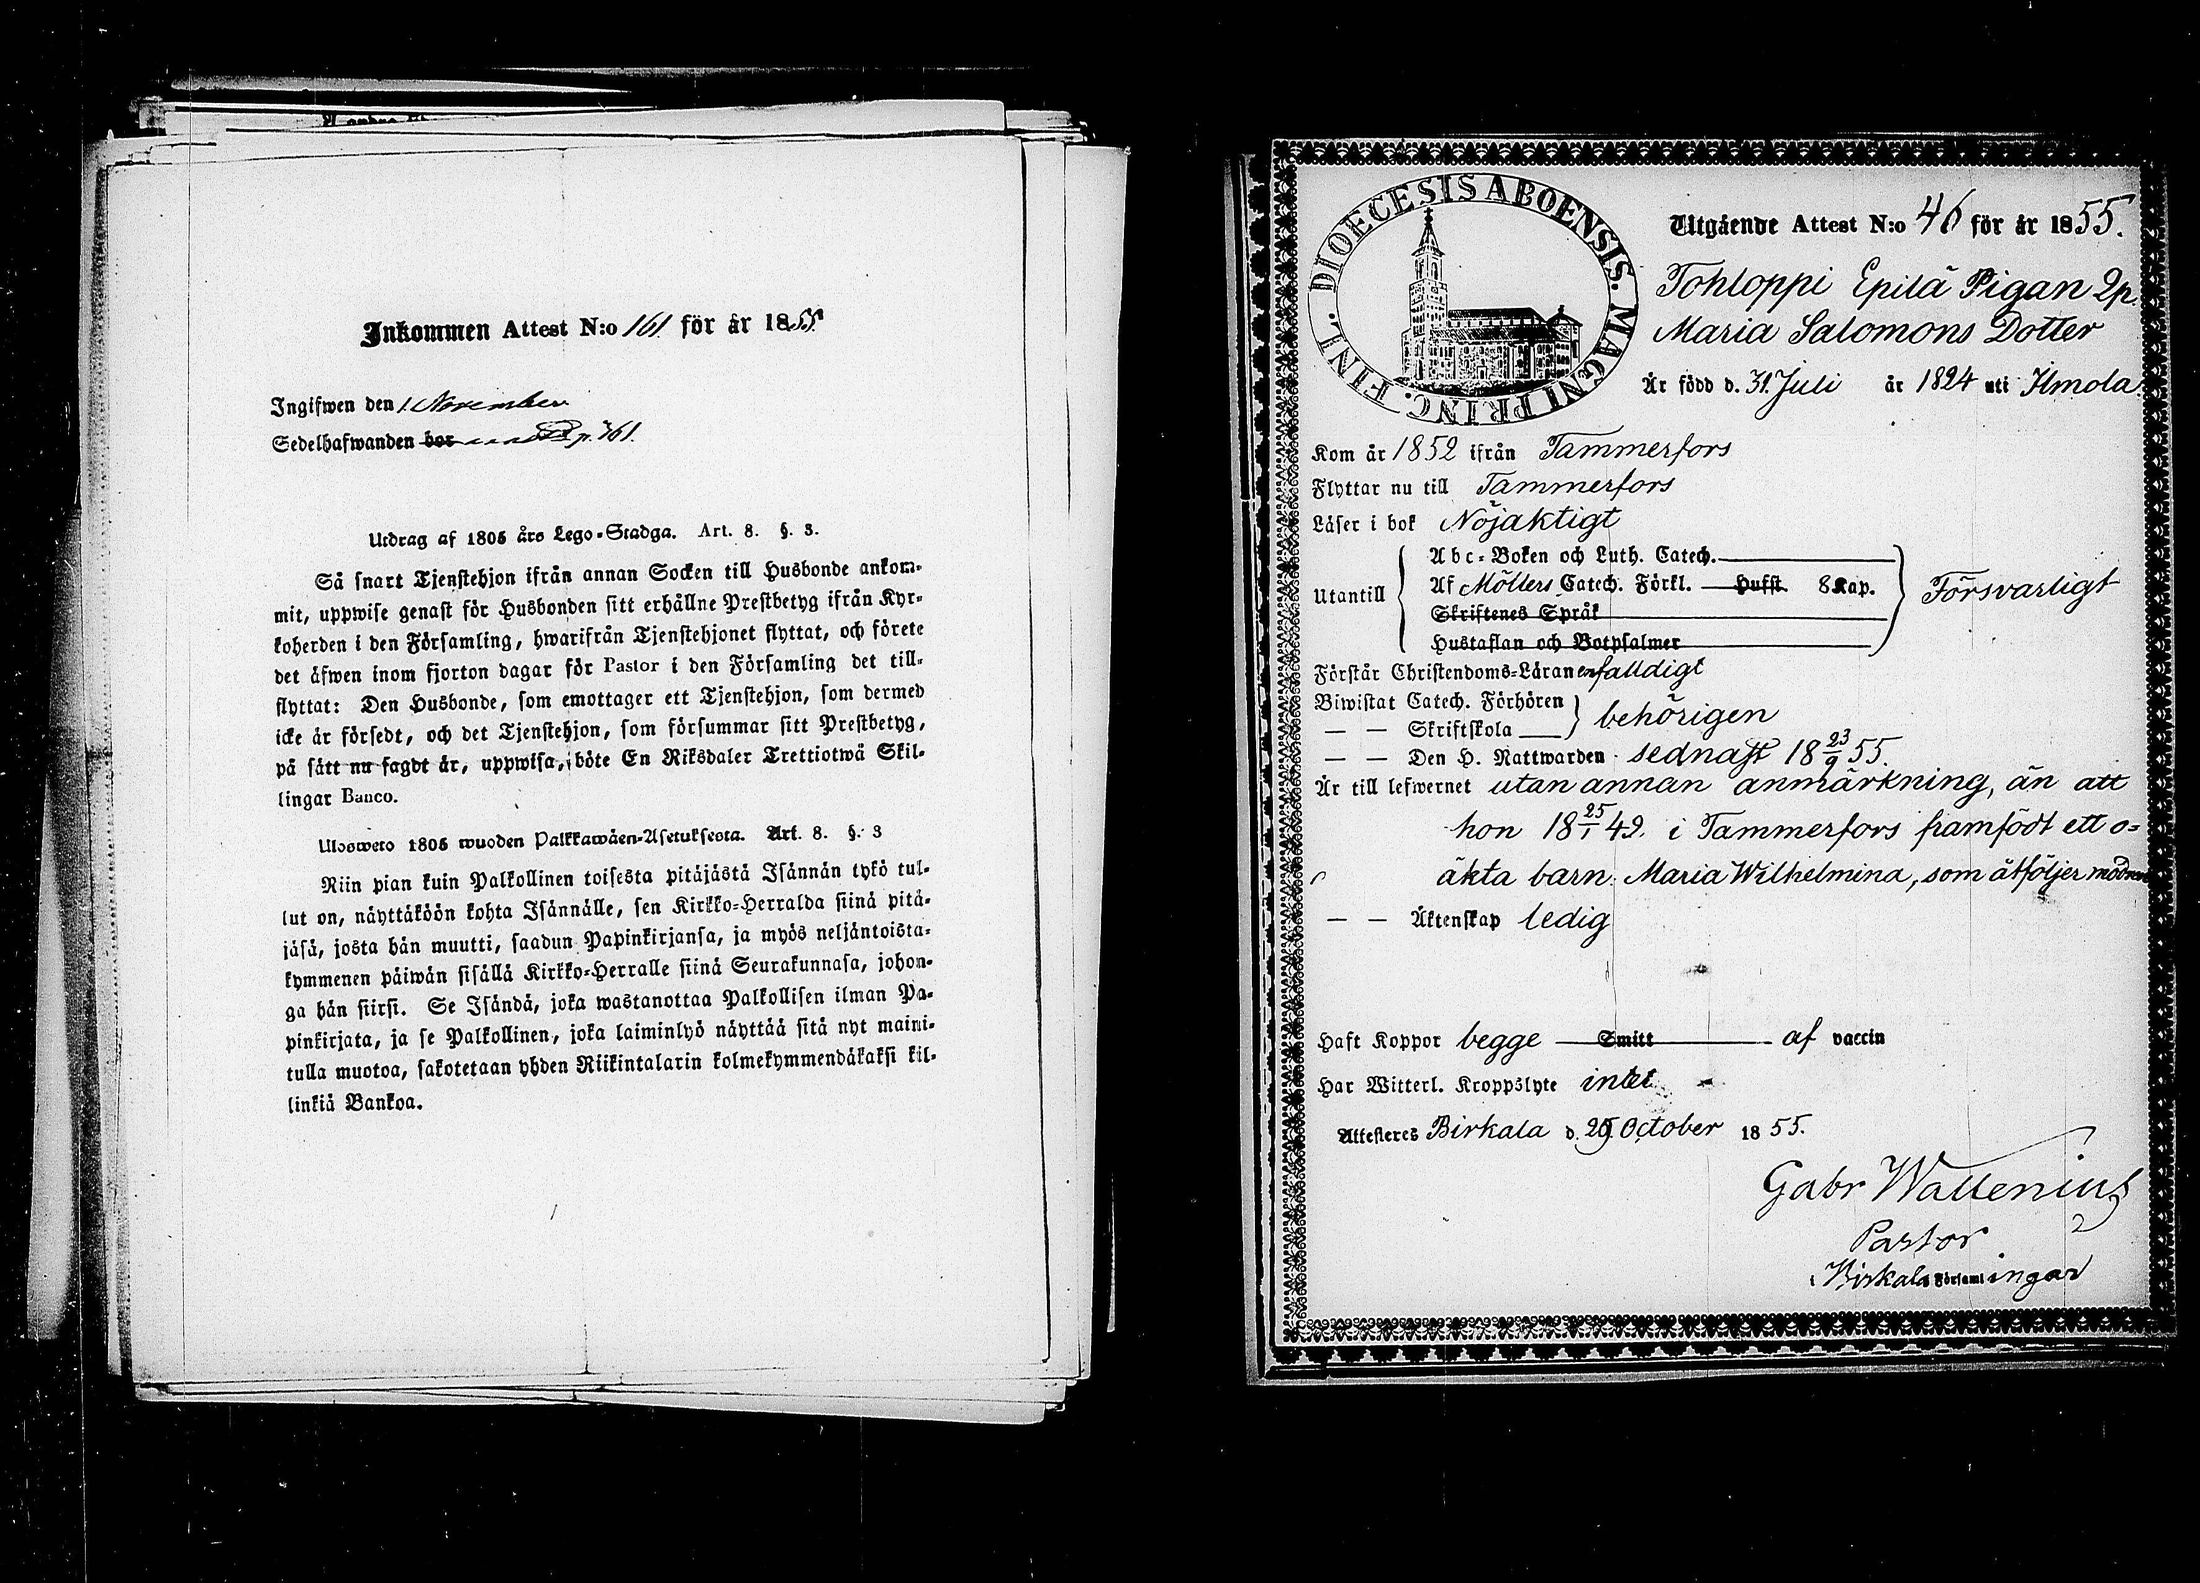 Inkommen Attest N:o 161. för år 1855
Ingifwen den 1. November
Sedelhafwanden bor p. 761.
Utdrag af 1805 års Lego-Stadga. Art. 8. §. 3.
Så snart Tjenstehjon ifrån annan Socken till Husbonde ankom-
mit, uppwise genast för Husbonden sitt erhållne Prestbetyg ifrån Kyr-
koherden i den Församling, hwarifrån Tjenstehjonet flyttat, och förete
det äfwen inom fjorton dagar för Pastor i den Församling det till-
flyttat: Den Husbonde, som emottager ett Tjenstehjon, som dermed
icke är försedt, och det Tjenstehjon, som försummar sitt Prestbetyg,
på sätt nu sagdt är, uppwisa, böte En Riksdaler Trettiotwå Skil-
lingar Banco.
Ulosweto 1805 wuoden Palkkawäen-Asetuksesta. Art. 8. §. 3
Niin pian kuin Palkollinen toisesta pitäjästä Isännän tykö tul-
lut on, näyttäköön kohta Isännälle, sen Kirkko-Herralda siinä pitä-
jäsä, josta hän muutti, saadun Papinkirjansa, ja myös neljäntoista-
kymmenen päiwän sisällä Kirkko-Herralle siinä Seurakunnasa, johon-
ga hän siirsi. Se Isändä, joka wastanottaa Palkollisen ilman Pa-
pinkirjata, ja se Palkollinen, joka laiminlyö näyttää sitä nyt maini-
tulla muotoa, sakotetaan yhden Riikintalarin kolmekymmendäkaksi kil-
linkiä Bankoa.
DIOECESIS ABOENSIS. MAGNI PRINC. FINL.
Utgående Attest N:o 46 för år 1855.
Tohloppi Epilä Pigan Qp.
Maria Salomons Dotter
Är född d. 31. Juli år 1824 uti Ilmola.
Kom år 1852 ifrån Tammerfors
Flyttar nu till Tammerfors
Läser i bok Nöjaktigt
Abc-Boken och Luth. Catech.
Utantill Af Möllers Catech. Förkl. Hufst 8 Kap. Försvarligt
Skriftenes Språk
Hustaflan och Botpsalmer
Förstår Christendoms-Läran enfalldigt
Biwistat Catech. Förhören
— — Skriftskola behörigen
— — Den H. Nattwarden sednast 18 23/9 55.
Är till lefwernet utan annan anmärkning, än att
hon 18 25/1 49. i Tammerfors framfödt ett o-
äkta barn: Maria Wilhelmina, som åtföljer modren
— — Äktenskap ledig
Haft Koppor begge Smitt af vaccin
Har Witterl. Kroppslyte intet
Attesteres Birkala d. 25 October 1855.
Gabr Wallenius
Pastor
Birkala Församlingar